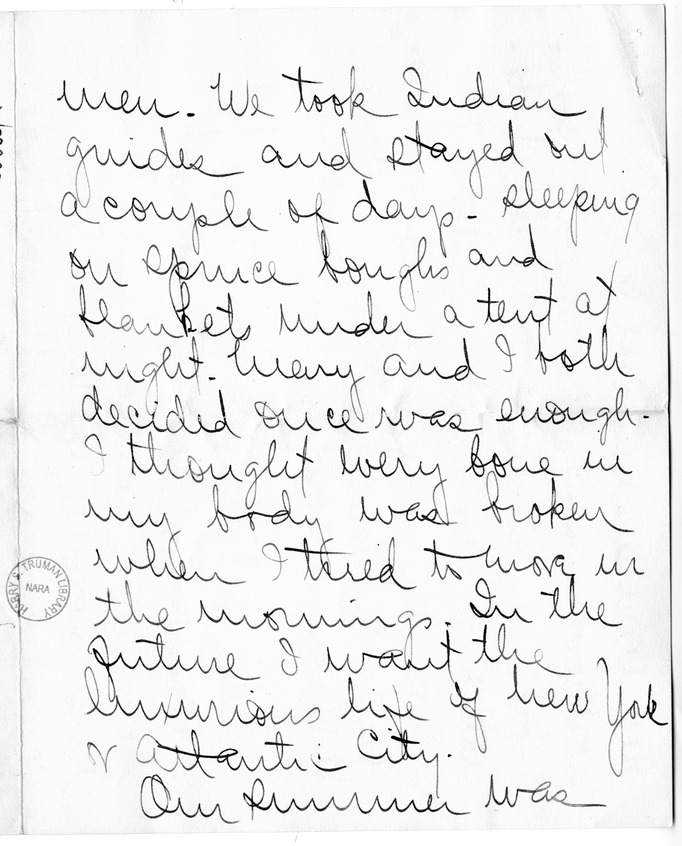 men. We took Indian
guides and stayed out
a couple of days - sleeping
on spruce boughs and
blankets under a tent at
night. Mary and I both
decided once was enough.
I thought every bone in
my body was broken
when I tried to move in
the mornings. In the
future I want the
luxurious life of New York
& Atlantic City.
Our summer was
HARRY S. TRUMAN LIBRARY
NARA